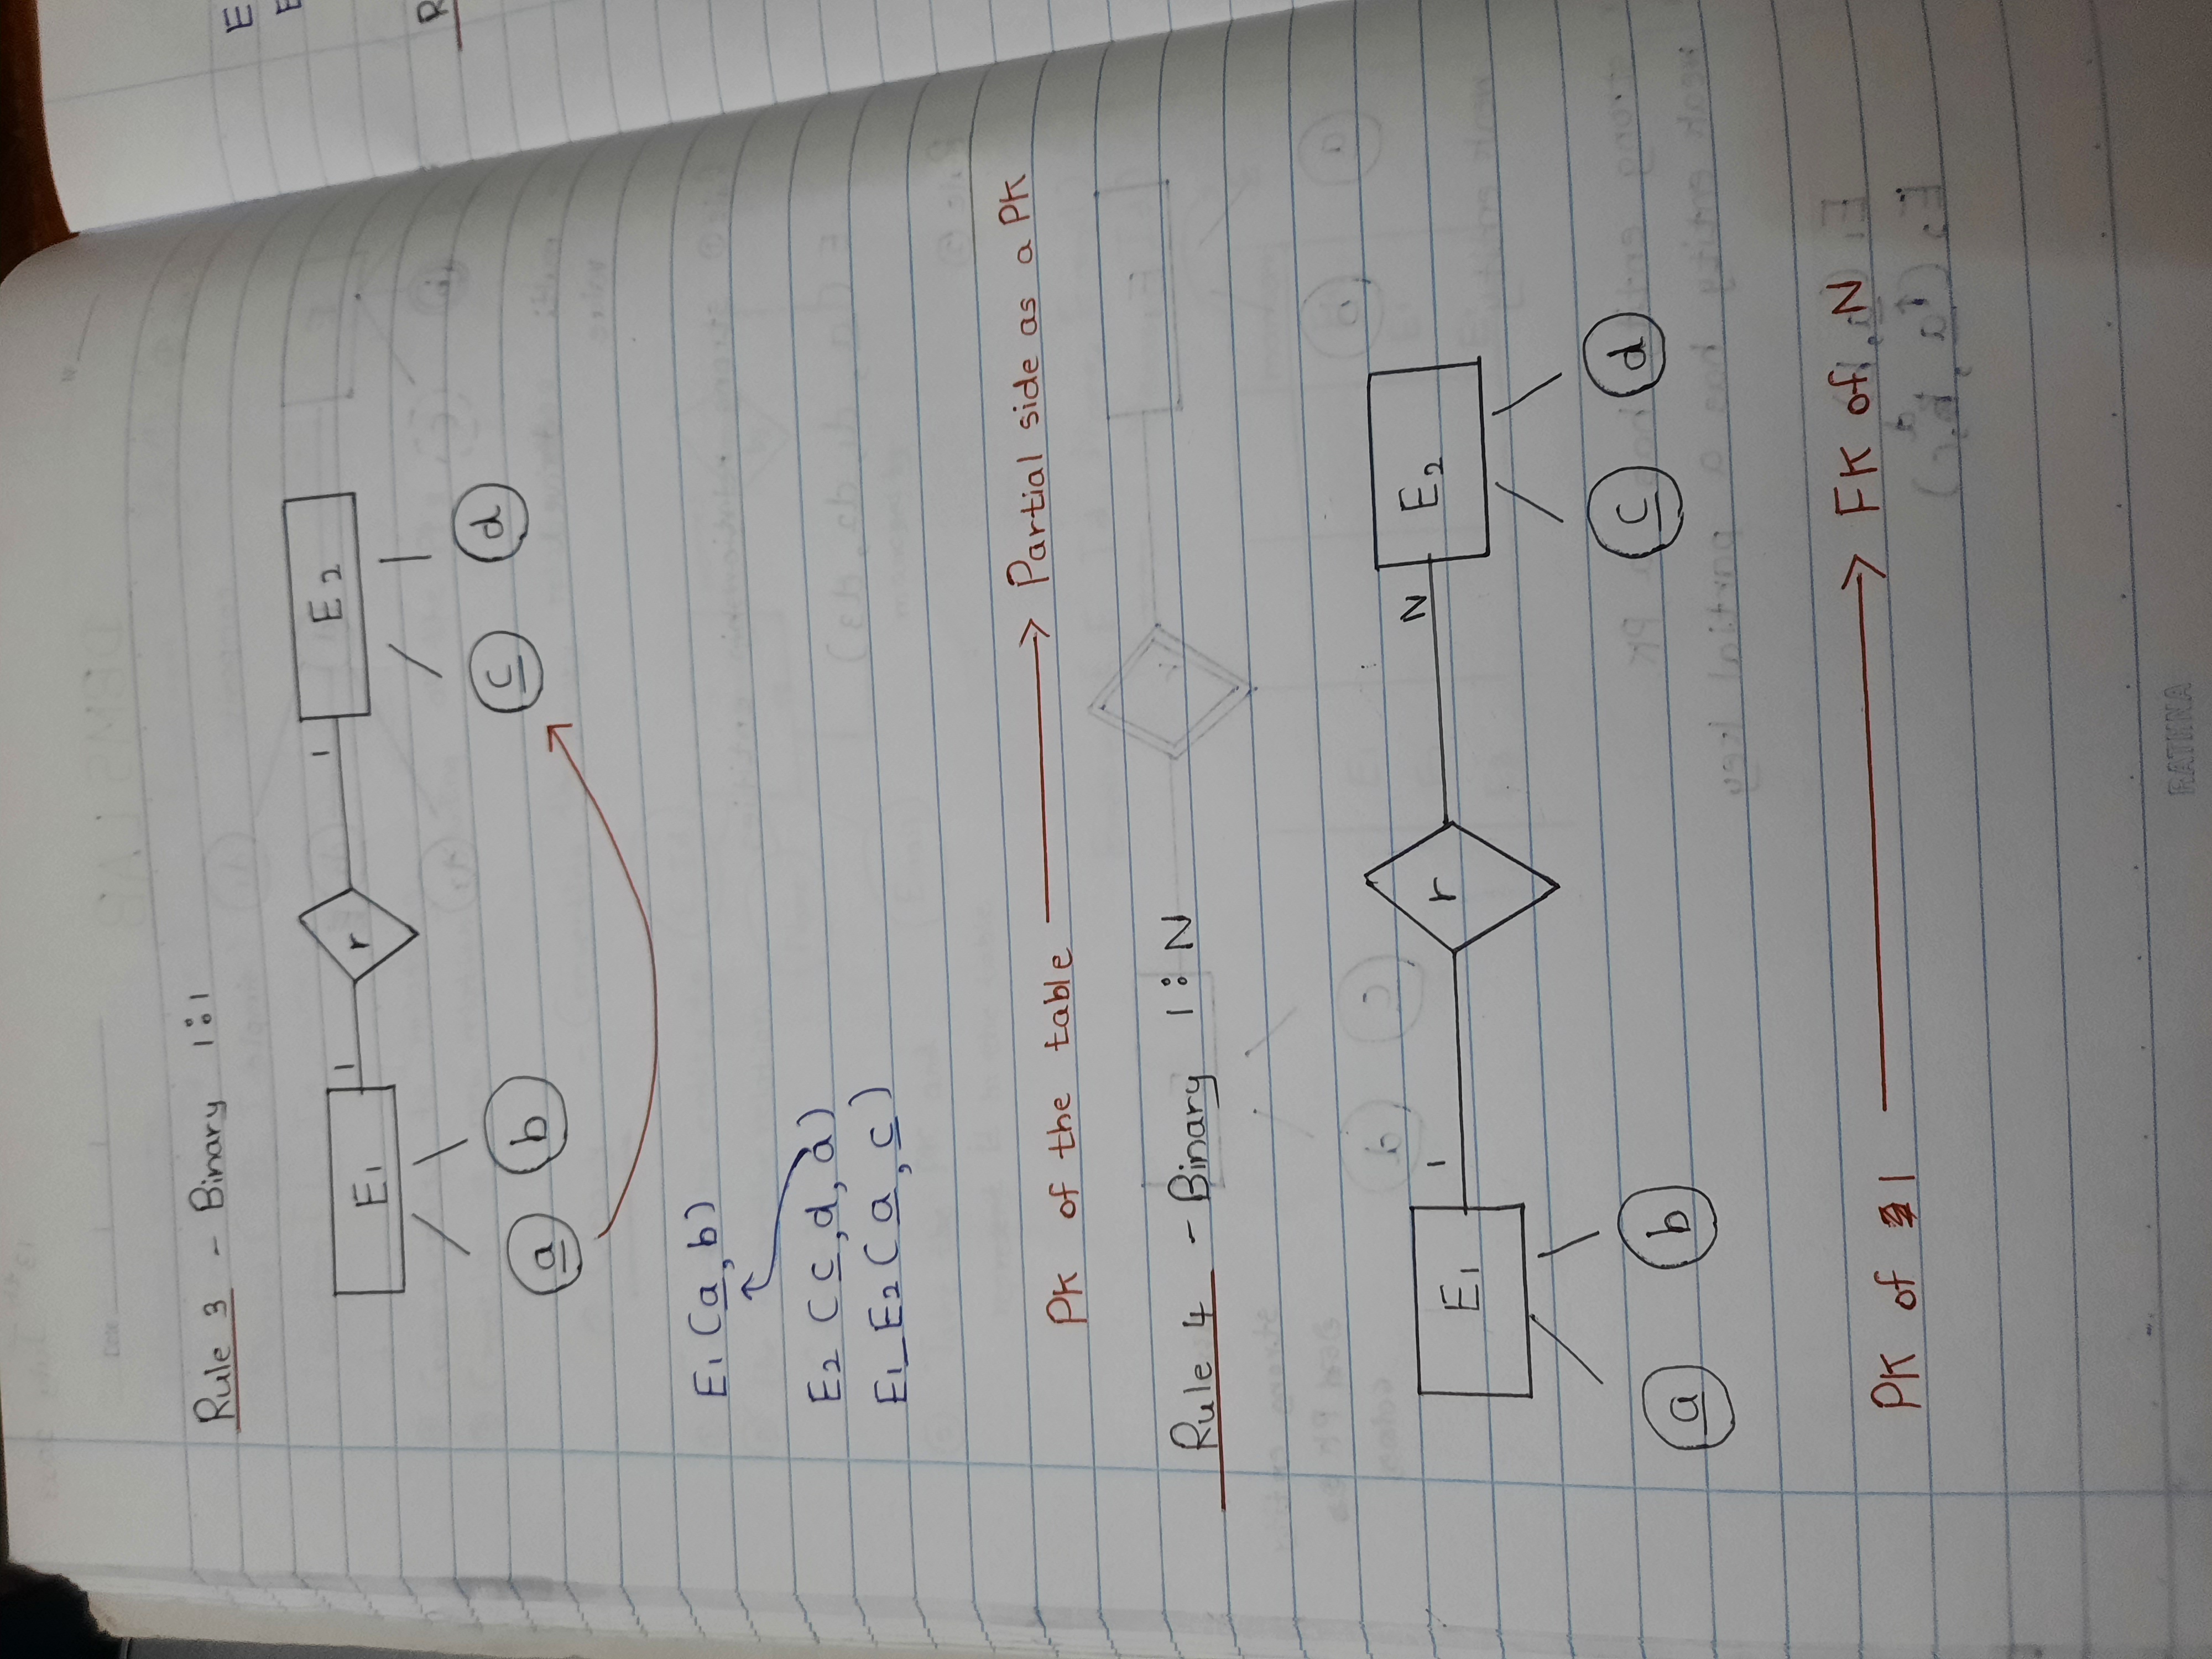 Rule 3 - Binary 1:1
E1 1 r 1 E2
a b c d
E1 (a, b)
E2 (c, d, a)
E1_E2 (a, c)
PK of the table → Partial side as a PK
Rule 4 - Binary 1:N
E1 1 r N E2
a b c d
PK of 1 → FK of N
RATHNA
E
E
R